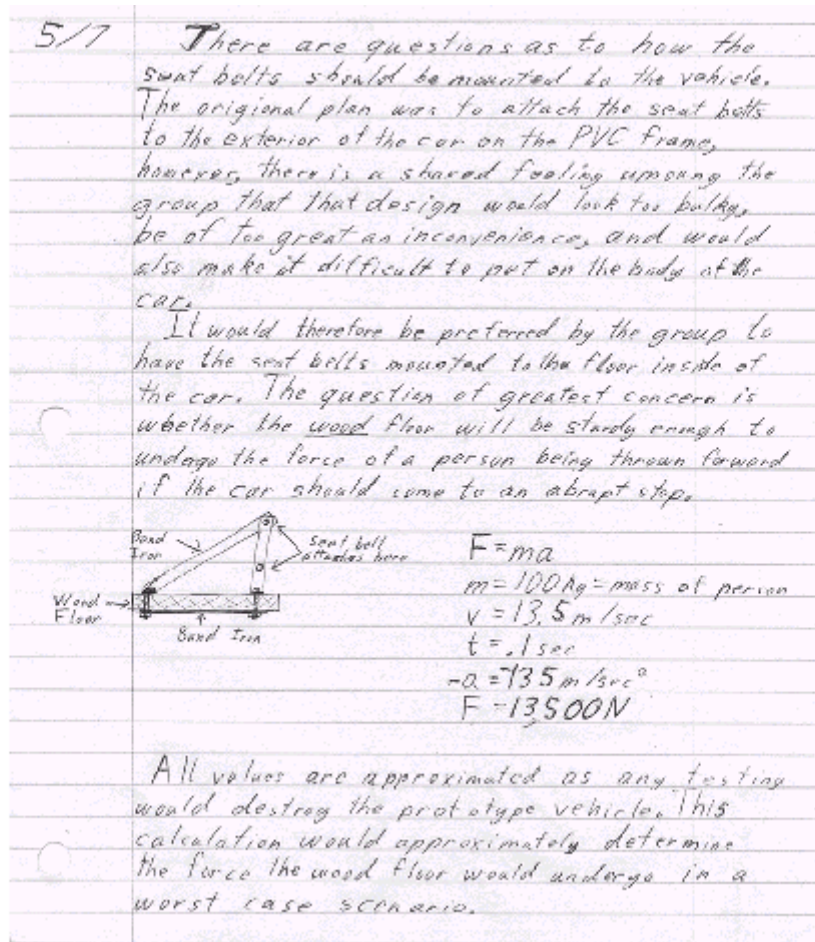 5/7 There are questions as to how the
seat belts should be mounted to the vehicle.
The origional plan was to attach the seat belts
to the exterior of the car on the PVC frame,
however, there is a shared feeling amoung the
group that that design would look too bulky,
be of too great an inconvenience, and would
also make it difficult to put on the body of the
car.
It would therefore be preferred by the group to
have the seat belts mounted to the floor inside of
the car. The question of greatest concern is
whether the wood floor will be sturdy enough to
undergo the force of a person being thrown forward
if the car should come to an abrupt stop.
Band
Iron
Seat belt
attaches here
Wood
Floor
Band Iron
F=ma
m=100kg=mass of person
v=13.5m/sec
t=.1sec
-a=135m/sec²
F=13,500N
All values are approximated as any testing
would destroy the prototype vehicle. This
calculation would approximately determine
the force the wood floor would undergo in a
worst case scenario.